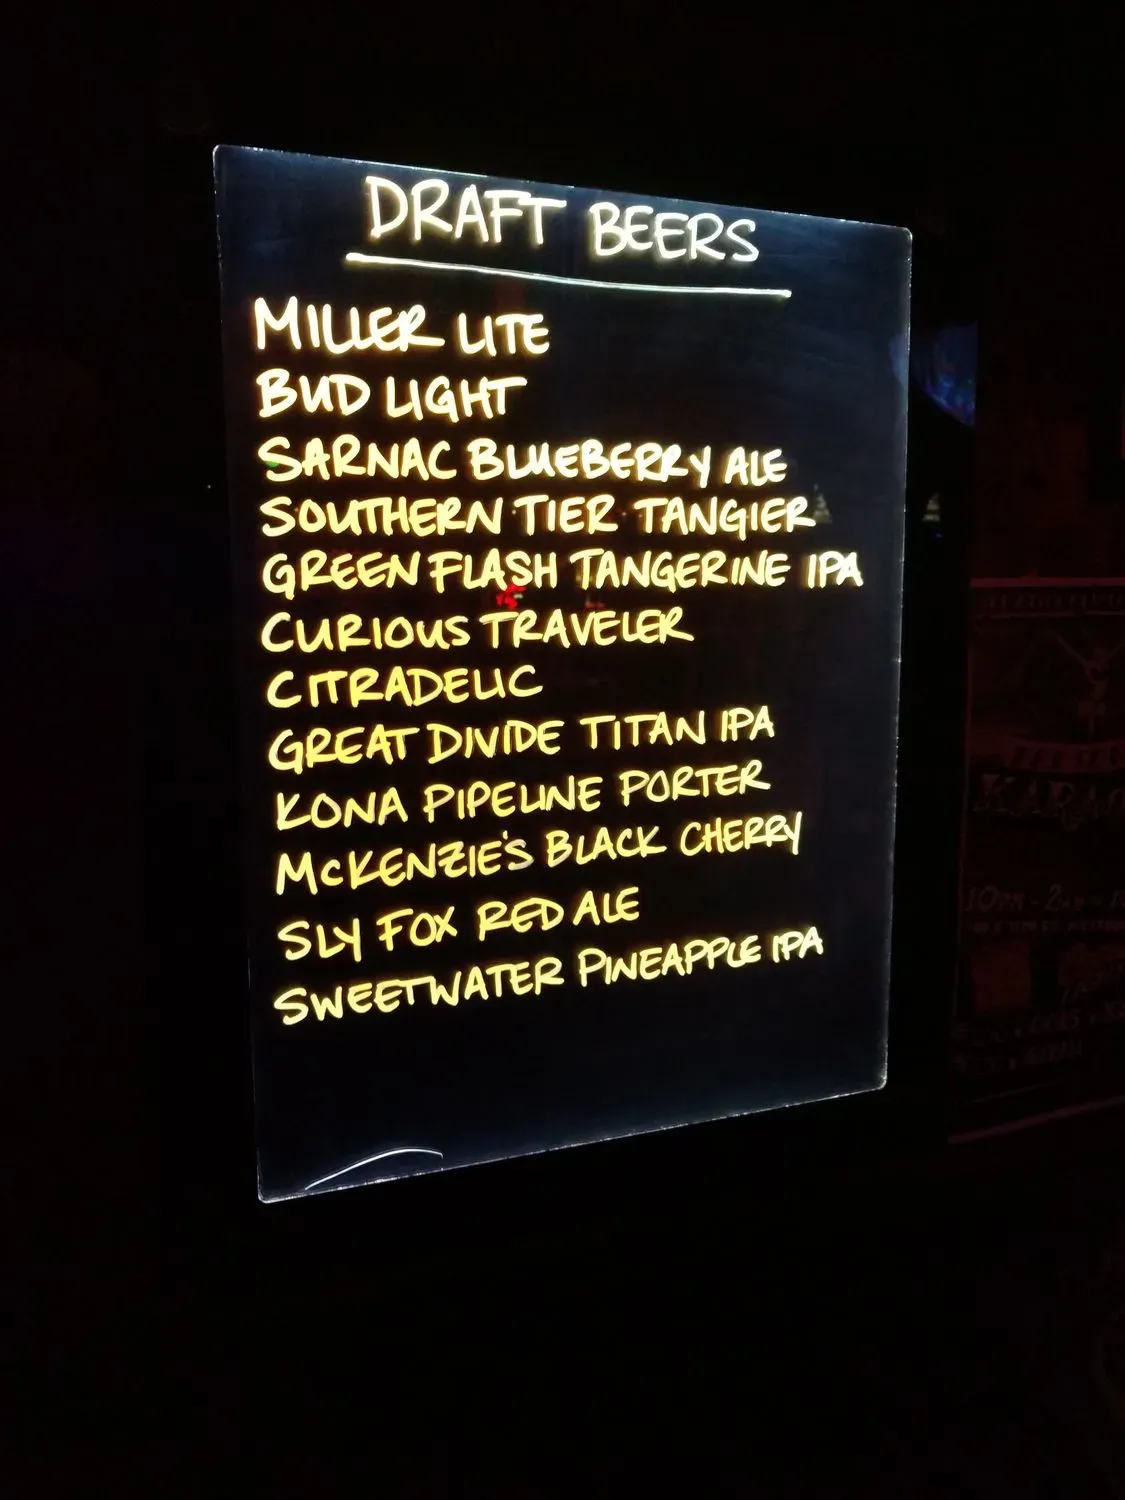 DRAFT BEERS
MILLER LITE
BUD LIGHT
SARNAC BLUEBERRY ALE
SOUTHERN TIER TANGIER
GREEN FLASH TANGERINE IPA
CURIOUS TRAVELER
CITRADELIC
GREAT DIVIDE TITAN IPA
KONA PIPELINE PORTER
MCKENZIE'S BLACK CHERRY
SLY FOX RED ALE
SWEETWATER PINEAPPLE IPA
10PM - 2AM